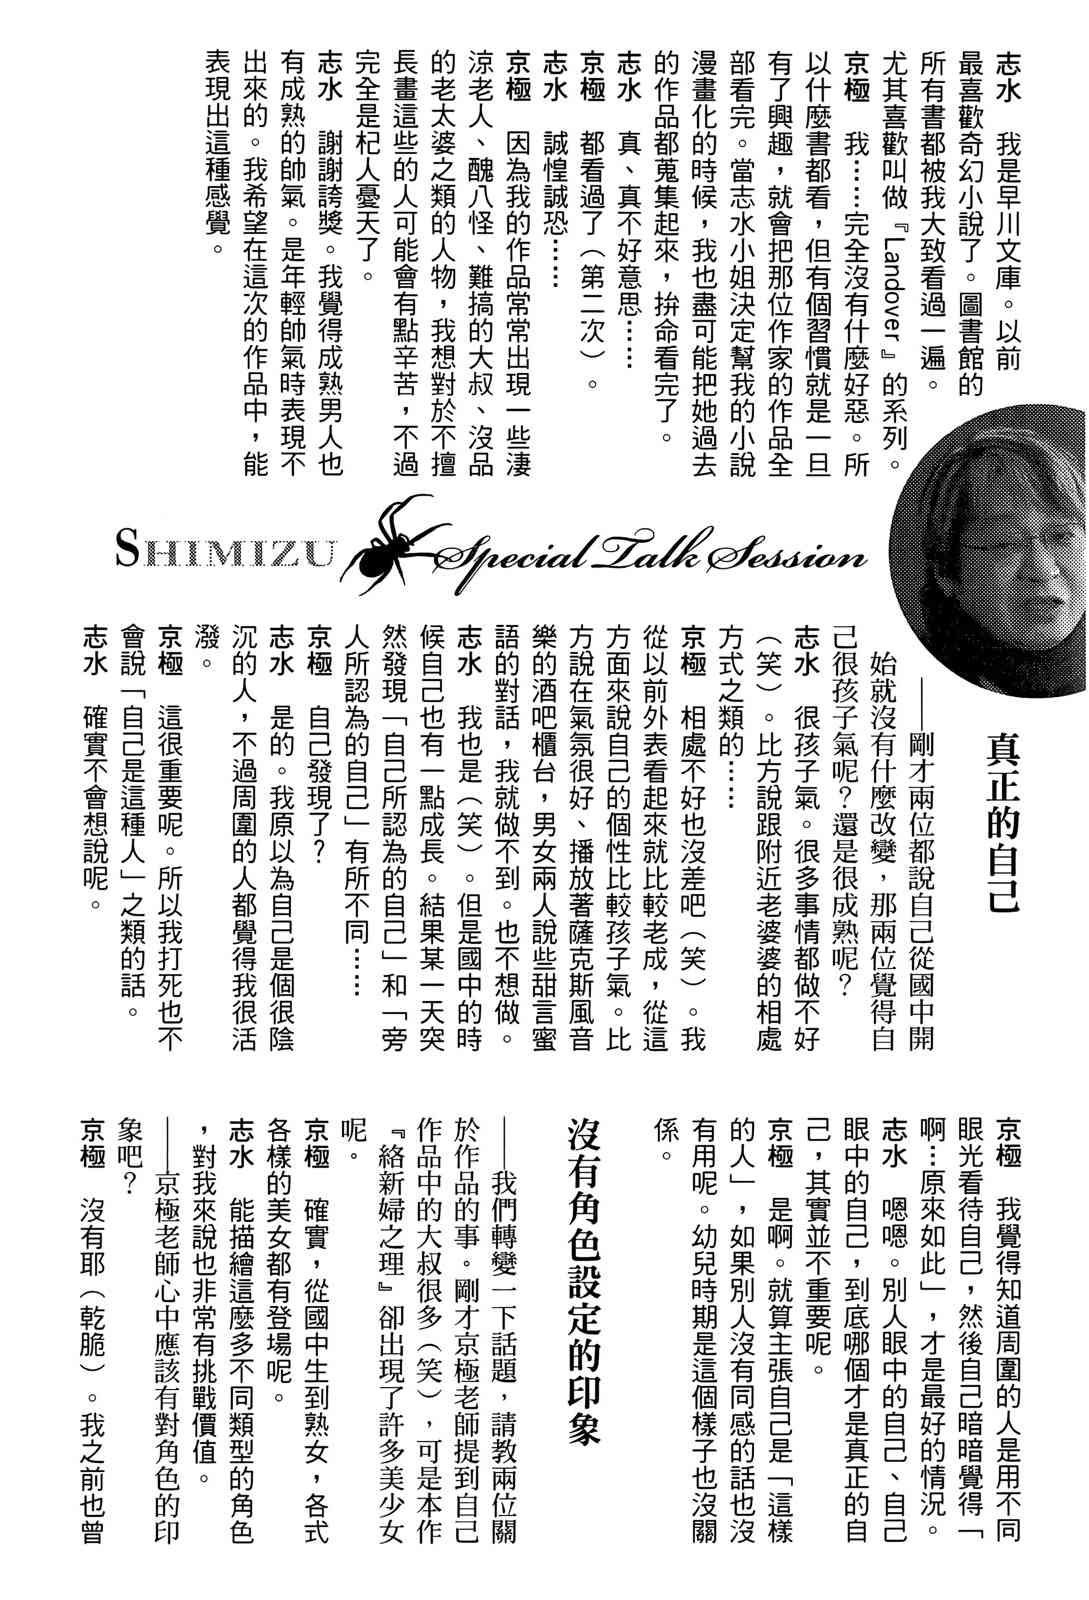 志水　我是早川文庫。以前
最喜歡奇幻小說了。圖書館的
所有書都被我大致看過一遍。
尤其喜歡叫做『Landover』的系列。
京極　我……完全沒有什麼好惡。所
以什麼書都看，但有個習慣就是一旦
有了興趣，就會把那位作家的作品全
部看完。當志水小姐決定幫我的小說
漫畫化的時候，我也盡可能把她過去
的作品都蒐集起來，拚命看完了。
志水　真、真不好意思……
京極　都看過了（第二次）。
志水　誠惶誠恐……
京極　因為我的作品常常出現一些淒
涼老人、醜八怪、難搞的大叔、沒品
的老太婆之類的人物，我想對於不擅
長畫這些的人可能會有點辛苦，不過
完全是杞人憂天了。
志水　謝謝誇獎。我覺得成熟男人也
有成熟的帥氣。是年輕帥氣時表現不
出來的。我希望在這次的作品中，能
表現出這種感覺。
SHIMIZU Special Talk Session
真正的自己
——剛才兩位都說自己從國中開
始就沒有什麼改變，那兩位覺得自
己很孩子氣呢？還是很成熟呢？
志水　很孩子氣。很多事情都做不好
（笑）。比方說跟附近老婆婆的相處
方式之類的……
京極　相處不好也沒差吧（笑）。我
從以前外表看起來就比較老成，從這
方面來說自己的個性比較孩子氣。比
方說在氣氛很好、播放著薩克斯風音
樂的酒吧櫃台，男女兩人說些甜言蜜
語的對話，我就做不到。也不想做。
志水　我也是（笑）。但是國中的時
候自己也有一點成長。結果某一天突
然發現「自己所認為的自己」和「旁
人所認為的自己」有所不同……
京極　自己發現了？
志水　是的。我原以為自己是個很陰
沉的人，不過周圍的人都覺得我很活
潑。
京極　這很重要呢。所以我打死也不
會說「自己是這種人」之類的話。
志水　確實不會想說呢。
京極　我覺得知道周圍的人是用不同
眼光看待自己，然後自己暗暗覺得「
啊…原來如此」，才是最好的情況。
志水　嗯嗯。別人眼中的自己、自己
眼中的自己，到底哪個才是真正的自
己，其實並不重要呢。
京極　是啊。就算主張自己是「這樣
的人」，如果別人沒有同感的話也沒
有用呢。幼兒時期是這個樣子也沒關
係。
沒有角色設定的印象
——我們轉變一下話題，請教兩位關
於作品的事。剛才京極老師提到自己
作品中的大叔很多（笑），可是本作
『絡新婦之理』卻出現了許多美少女
呢。
京極　確實，從國中生到熟女，各式
各樣的美女都有登場呢。
志水　能描繪這麼多不同類型的角色
，對我來說也非常有挑戰價值。
——京極老師心中應該有對角色的印
象吧？
京極　沒有耶（乾脆）。我之前也曾